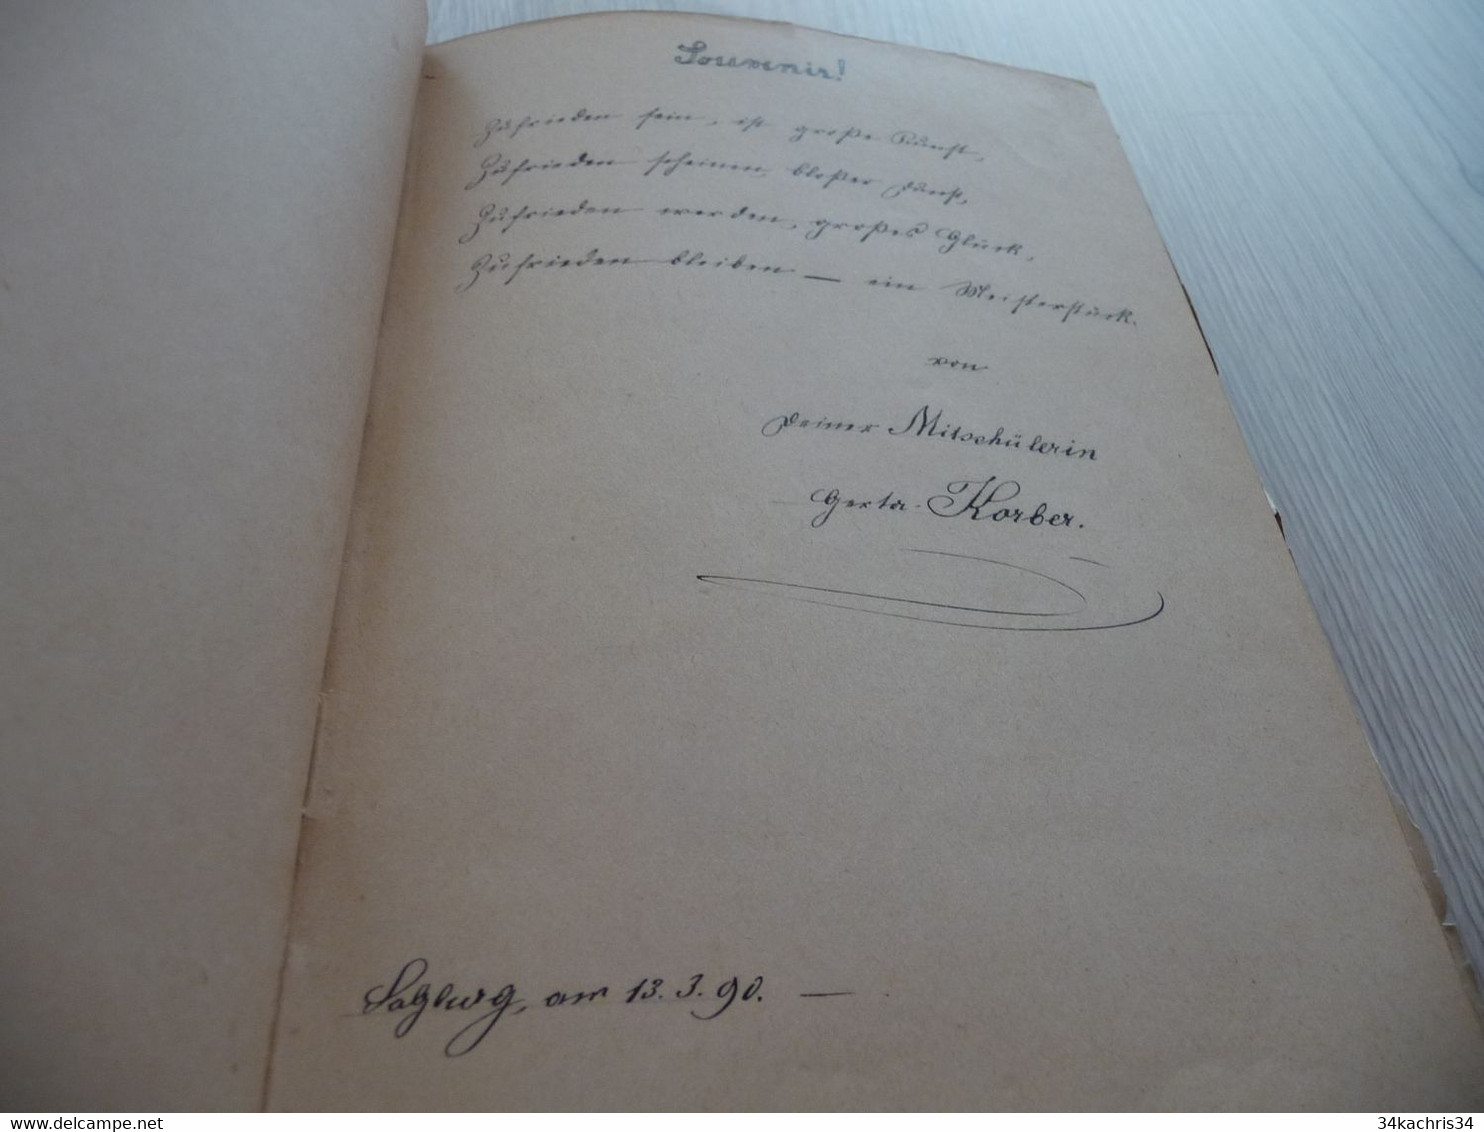 Souvenir!
Zufrieden sein, ist große Kunst,
Zufrieden scheinen, bloßer Dunst,
Zufrieden werden, großes Glück,
Zufrieden bleiben — ein Meisterstück.
von
Deiner Mitschülerin
Gerta Korber.
Salzburg, am 13. 3. 90. —
34kachris34